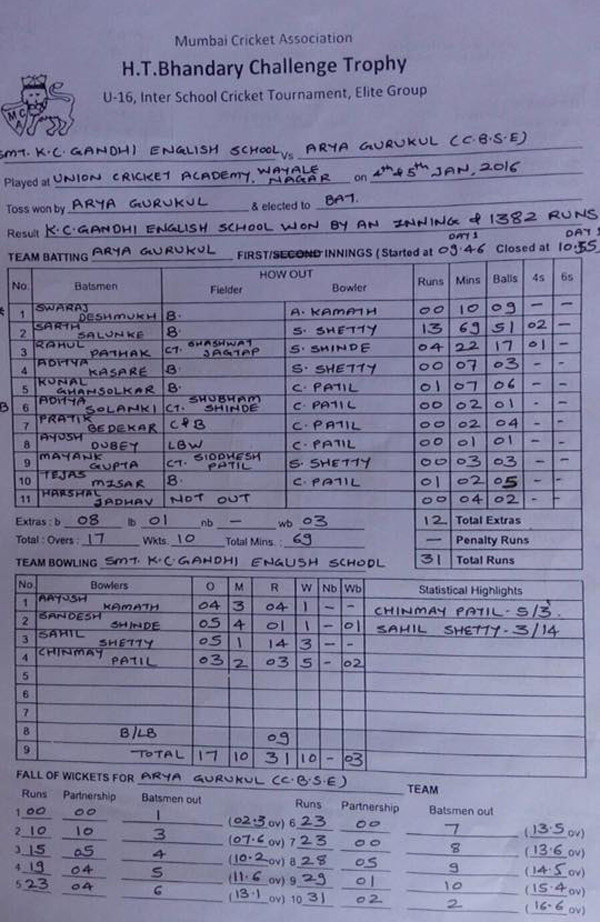 Mumbai Cricket Association
H.T.Bhandary Challenge Trophy
U-16, Inter School Cricket Tournament, Elite Group
MCA
SMT. K.C. GANDHI ENGLISH SCHOOL Vs ARYA GURUKUL (C.B.S.E)
Played at UNION CRICKET ACADEMY, WAYALE NAGAR on 4th & 5th JAN, 2016
Toss won by ARYA GURUKUL & elected to BAT.
Result K.C. GANDHI ENGLISH SCHOOL WON BY AN INNING & 1382 RUNS
DAY 1 DAY 1
TEAM BATTING ARYA GURUKUL FIRST/SECOND INNINGS (Started at 09.46 Closed at 10.55
No. Batsmen HOW OUT Fielder Bowler Runs Mins Balls 4s 6s
* 1 SWARAJ DESHMUKH B. A. KAMATH 00 10 09 - -
2 SARTH SALUNKE B. S. SHETTY 13 69 51 02 -
3 RAHUL PATHAK CT. SHASHWAT JAGTAP S. SHINDE 04 22 17 01 -
4 ADITYA KASARE B. S. SHETTY 00 07 03 - -
5 KUNAL GHANSOLKAR B. C. PATIL 01 07 06 - -
B 6 ADITYA SOLANKI CT. SHUBHAM SHINDE C. PATIL 00 02 01 - -
7 PRATIK BEDEKAR C&B C. PATIL 00 02 04 - -
8 AYUSH DUBEY LBW C. PATIL 00 01 01 - -
9 MAYANK GUPTA CT. SIDDHESH PATIL S. SHETTY 00 03 03 - -
10 TEJAS MISAR B. C. PATIL 01 02 05 - -
11 HARSHAL JADHAV NOT OUT 00 04 02 - -
Extras : b 08 lb 01 nb - wb 03 12 Total Extras
Total : Overs : 17 Wkts. 10 Total Mins. : 69 - Penalty Runs
31 Total Runs
TEAM BOWLING SMT. K.C. GANDHI ENGLISH SCHOOL
No. Bowlers O M R W Nb Wb Statistical Highlights
1 AAYUSH KAMATH 04 3 04 1 - - CHINMAY PATIL - 5/3.
2 SANDESH SHINDE 05 4 01 1 - 01 SAHIL SHETTY - 3/14
3 SAHIL SHETTY 05 1 14 3 - -
4 CHINMAY PATIL 03 2 03 5 - 02
5
6
7
8 B/LB 09
9 TOTAL 17 10 31 10 - 03
FALL OF WICKETS FOR ARYA GURUKUL (C.B.S.E) TEAM
Runs Partnership Batsmen out Runs Partnership Batsmen out
1 00 00 1 (02.3 ov) 6 23 00 7 (13.5 ov)
2 10 10 3 (07.6 ov) 7 23 00 8 (13.6 ov)
3 15 05 4 (10.2 ov) 8 28 05 9 (14.5 ov)
4 19 04 5 (11.6 ov) 9 29 01 10 (15.4 ov)
5 23 04 6 (13.1 ov) 10 31 02 2 (16.6 ov)